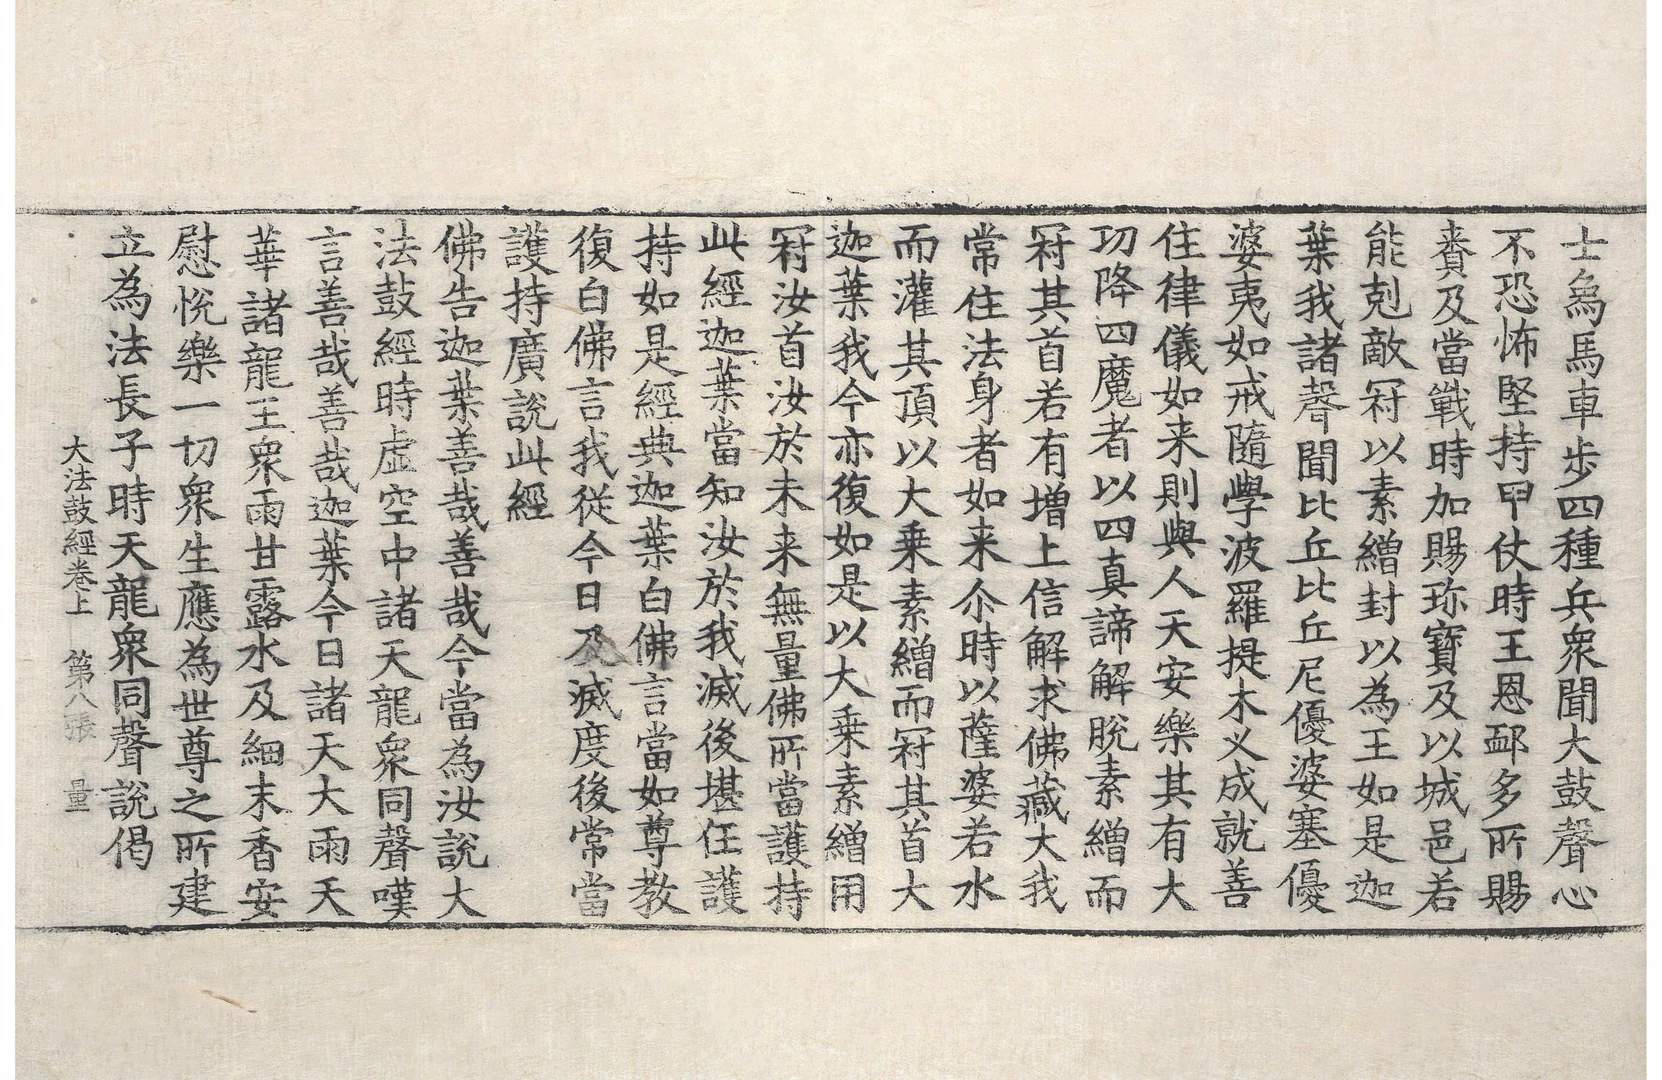 士象馬車步四種兵衆聞大鼓聲心
不恐怖堅持甲仗時王恩卹多所賜
賚及當戰時加賜珎寶及以城邑若
能剋敵冠以素繒封以為王如是迦
葉我諸聲聞比丘比丘尼優婆塞優
婆夷如戒隨學波羅提木义成就善
住律儀如来則與人天安樂其有大
功降四魔者以四真諦解脫素繒而
冠其首若有增上信解求佛藏大我
常住法身者如来尒時以薩婆若水
而灌其頂以大乗素繒而冠其首大
迦葉我今亦復如是以大乗素繒用
冠汝首汝於未来無量佛所當護持
此經迦葉當知汝於我滅後堪任護
持如是經典迦葉白佛言當如尊教
復白佛言我從今日及滅度後常當
護持廣說此經
佛告迦葉善哉善哉今當為汝說大
法鼓經時虛空中諸天龍衆同聲嘆
言善哉善哉迦葉今日諸天大雨天
華諸龍王衆雨甘露水及細末香安
慰悅樂一切衆生應為世尊之所建
立為法長子時天龍衆同聲說偈
大法鼓經卷上　第八張　量